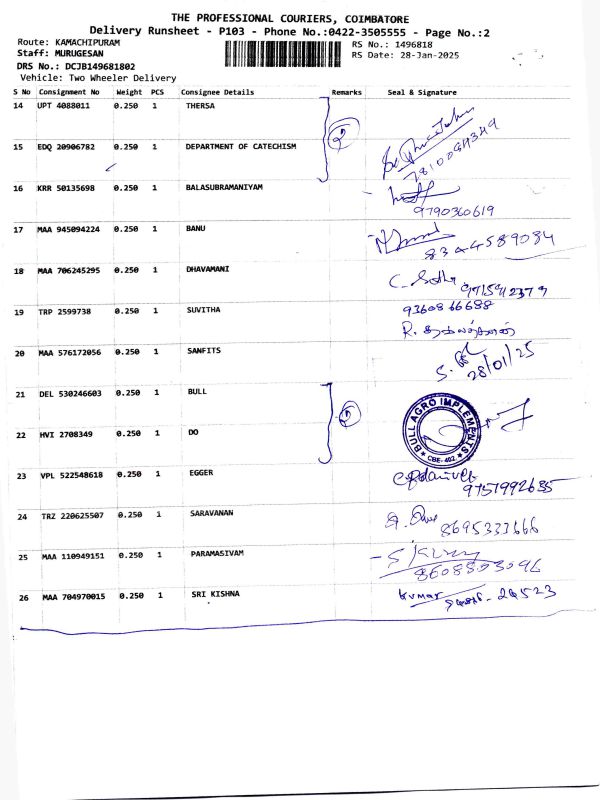 THE PROFESSIONAL COURIERS, COIMBATORE
Delivery Runsheet - P103 - Phone No.:0422-3505555 - Page No.:2
Route: KAMACHIPURAM
Staff: MURUGESAN
DRS No.: DCJB149681802
Vehicle: Two Wheeler Delivery
RS No.: 1496818
RS Date: 28-Jan-2025
S No Consignment No Weight PCS Consignee Details Remarks Seal & Signature
14 UPT 4088011 0.250 1 THERSA
2
15 EDQ 20906782 0.250 1 DEPARTMENT OF CATECHISM
16 KRR 50135698 0.250 1 BALASUBRAMANIYAM
9790360619
17 MAA 945094224 0.250 1 BANU
8344589084
18 MAA 706245295 0.250 1 DHAVAMANI
19 TRP 2599738 0.250 1 SUVITHA 9360866688
R.
20 MAA 576172056 0.250 1 SANFITS
28/01/25
21 DEL 530246603 0.250 1 BULL
2
BULL AGRO IMPLEMENTS
CBE-402
22 HVI 2708349 0.250 1 DO
23 VPL 522548618 0.250 1 EGGER
9751992635
24 TRZ 220625507 0.250 1 SARAVANAN
8695333666
25 MAA 110949151 0.250 1 PARAMASIVAM
8608803096
26 MAA 704970015 0.250 1 SRI KISHNA kumar